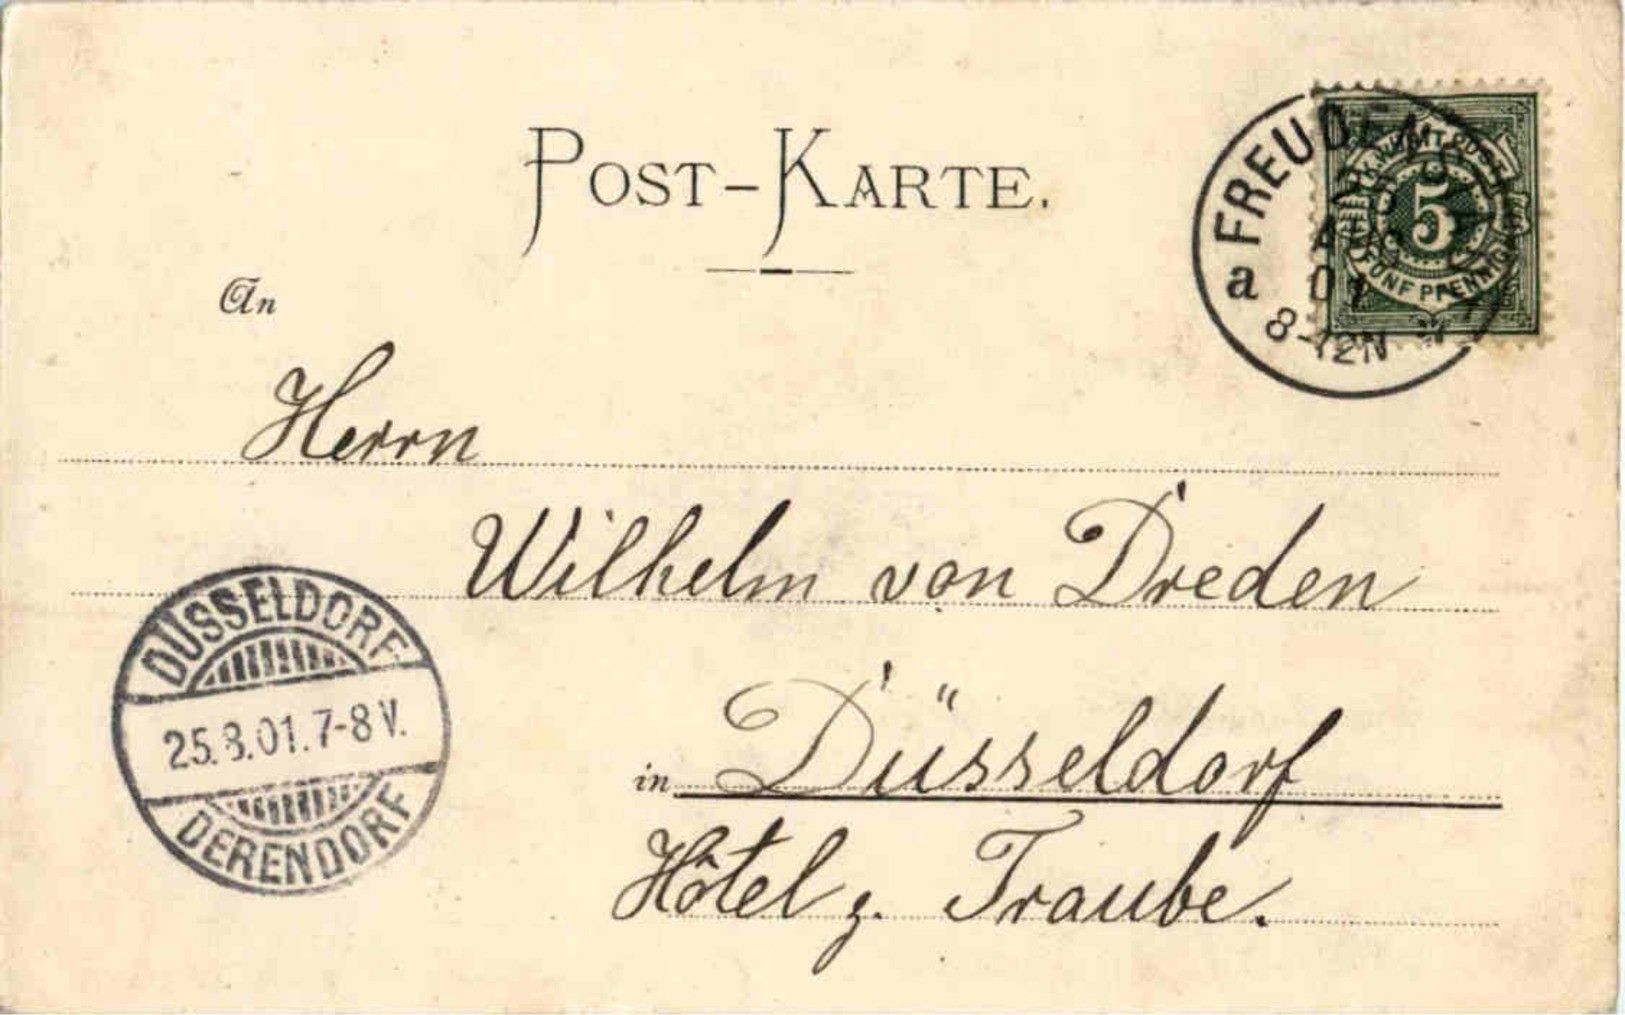 POST-KARTE.
K. WÜRTT. POST
5
FÜNF PFENNIG
FREUDENSTADT
AUG
01
a
8-12N
An
Herrn
Wilhelm von Dreden
DÜSSELDORF
25.8.01.7-8V.
DERENDORF
in Düsseldorf
Hôtel z. Traube.